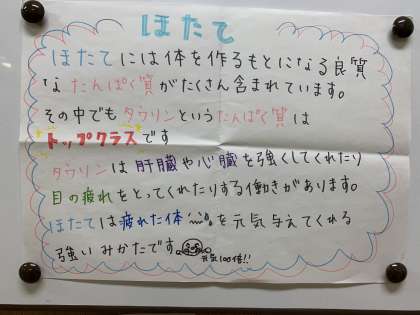 ほたて
ほたてには体を作るもとになる良質
なたんぱく質がたくさん含まれています。
その中でもタウリンというたんぱく質は
トップクラスです
タウリンは肝臓や心臓を強くしてくれたり
目の疲れをとってくれたりする働きがあります。
ほたては疲れた体を元気与えてくれる
強いみかたです
元気100倍!!